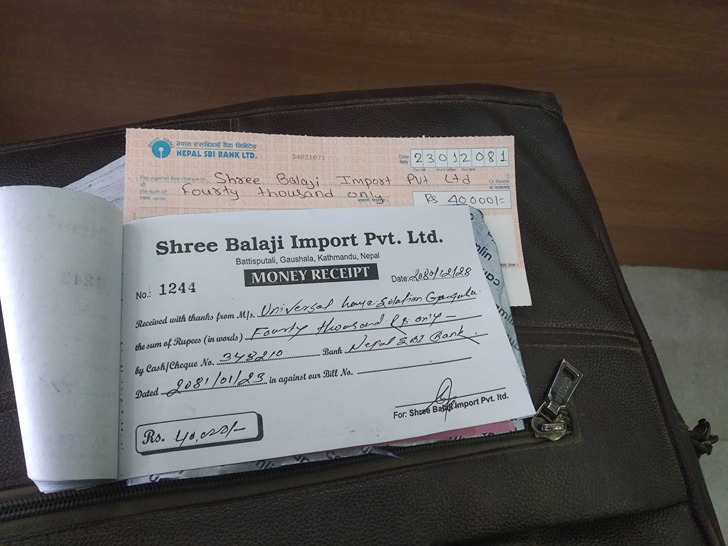 नेपाल एसबिआई बैंक लिमिटेड
NEPAL SBI BANK LTD.
54021071
Date 23012081
Pay against this cheque to Shree Balaji Import Pvt Ltd
the sum of Fourty thousand only
Rs 40000/=
Shree Balaji Import Pvt. Ltd.
Battisputali, Gaushala, Kathmandu, Nepal
MONEY RECEIPT
No.: 1244
Date: 2080/12/28
Received with thanks from M/s. Universal house solution
the sum of Rupees (in words) Fourty thousand Rs only
by Cash/Cheque No. 348210 Bank Nepal SBI Bank.
Dated 2081/01/23 in against our Bill No.
For: Shree Balaji Import Pvt. ltd.
Rs. 40,000/-